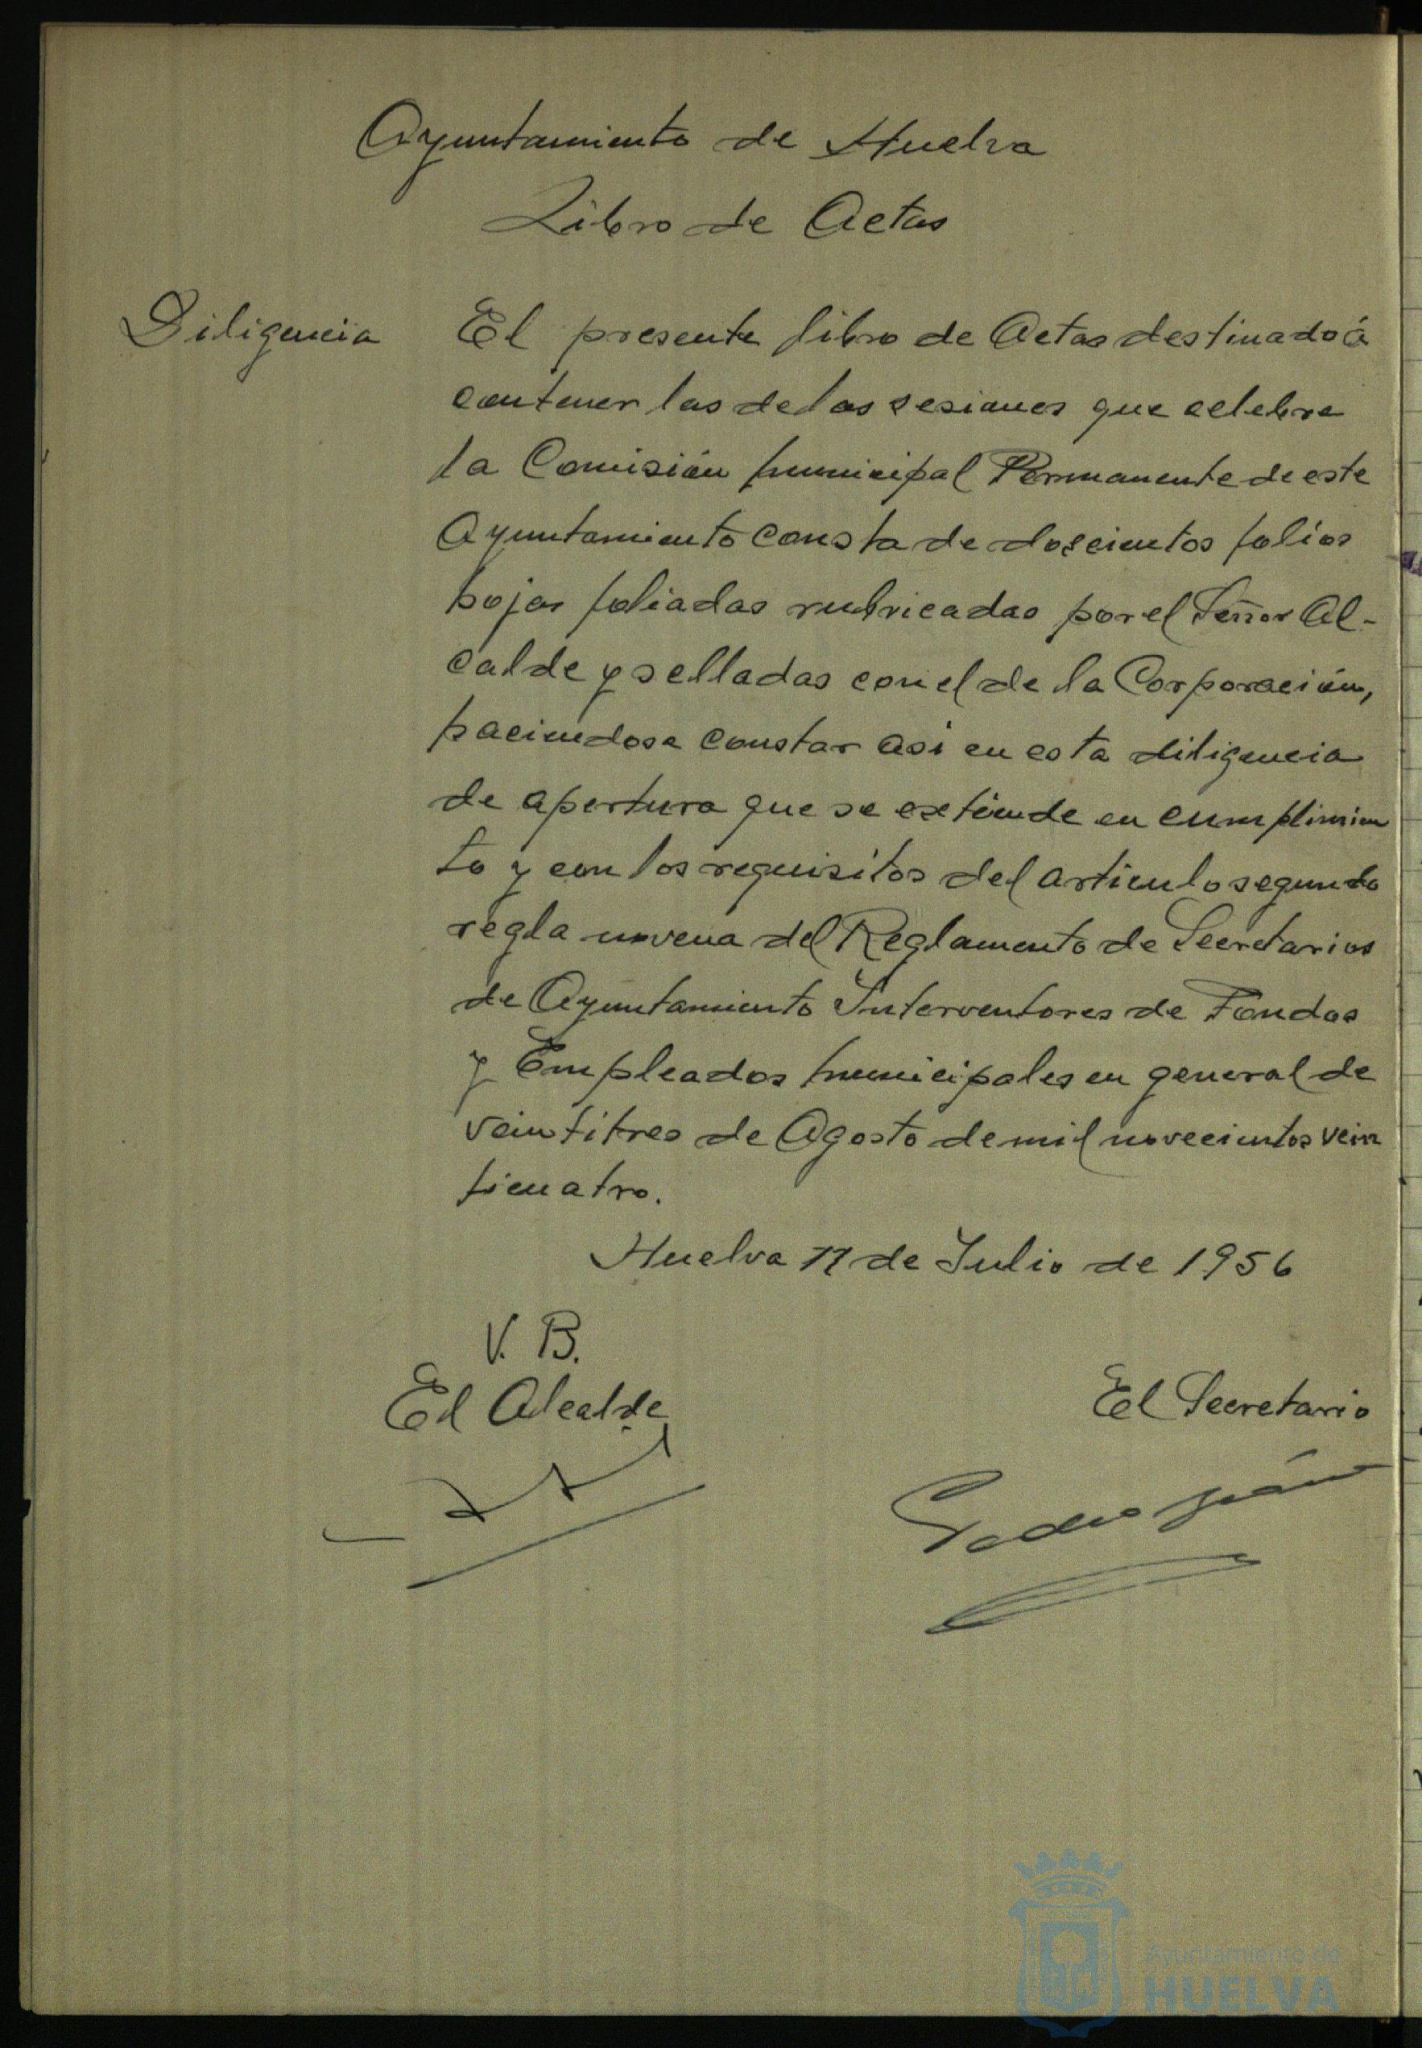 Ayuntamiento de Huelva
Libro de Actas
Diligencia
El presente libro de Actas destinado á
contener las de las sesiones que celebre
la Comisión municipal Permanente de este
Ayuntamiento consta de doscientos folios
hojas foliadas rubricadas por el Señor Al-
calde y selladas con el de la Corporación,
haciendose constar asi en esta diligencia
de apertura que se extiende en cumplimien
to y con los requisitos del articulo segundo
regla novena del Reglamento de Secretarios
de Ayuntamiento Interventores de Fondos
y Empleados municipales en general de
veintitres de Agosto de mil novecientos vein
ticuatro.
Huelva 17 de Julio de 1956
V. B.
El Alcalde
El Secretario
Pedro
Ayuntamiento de
HUELVA